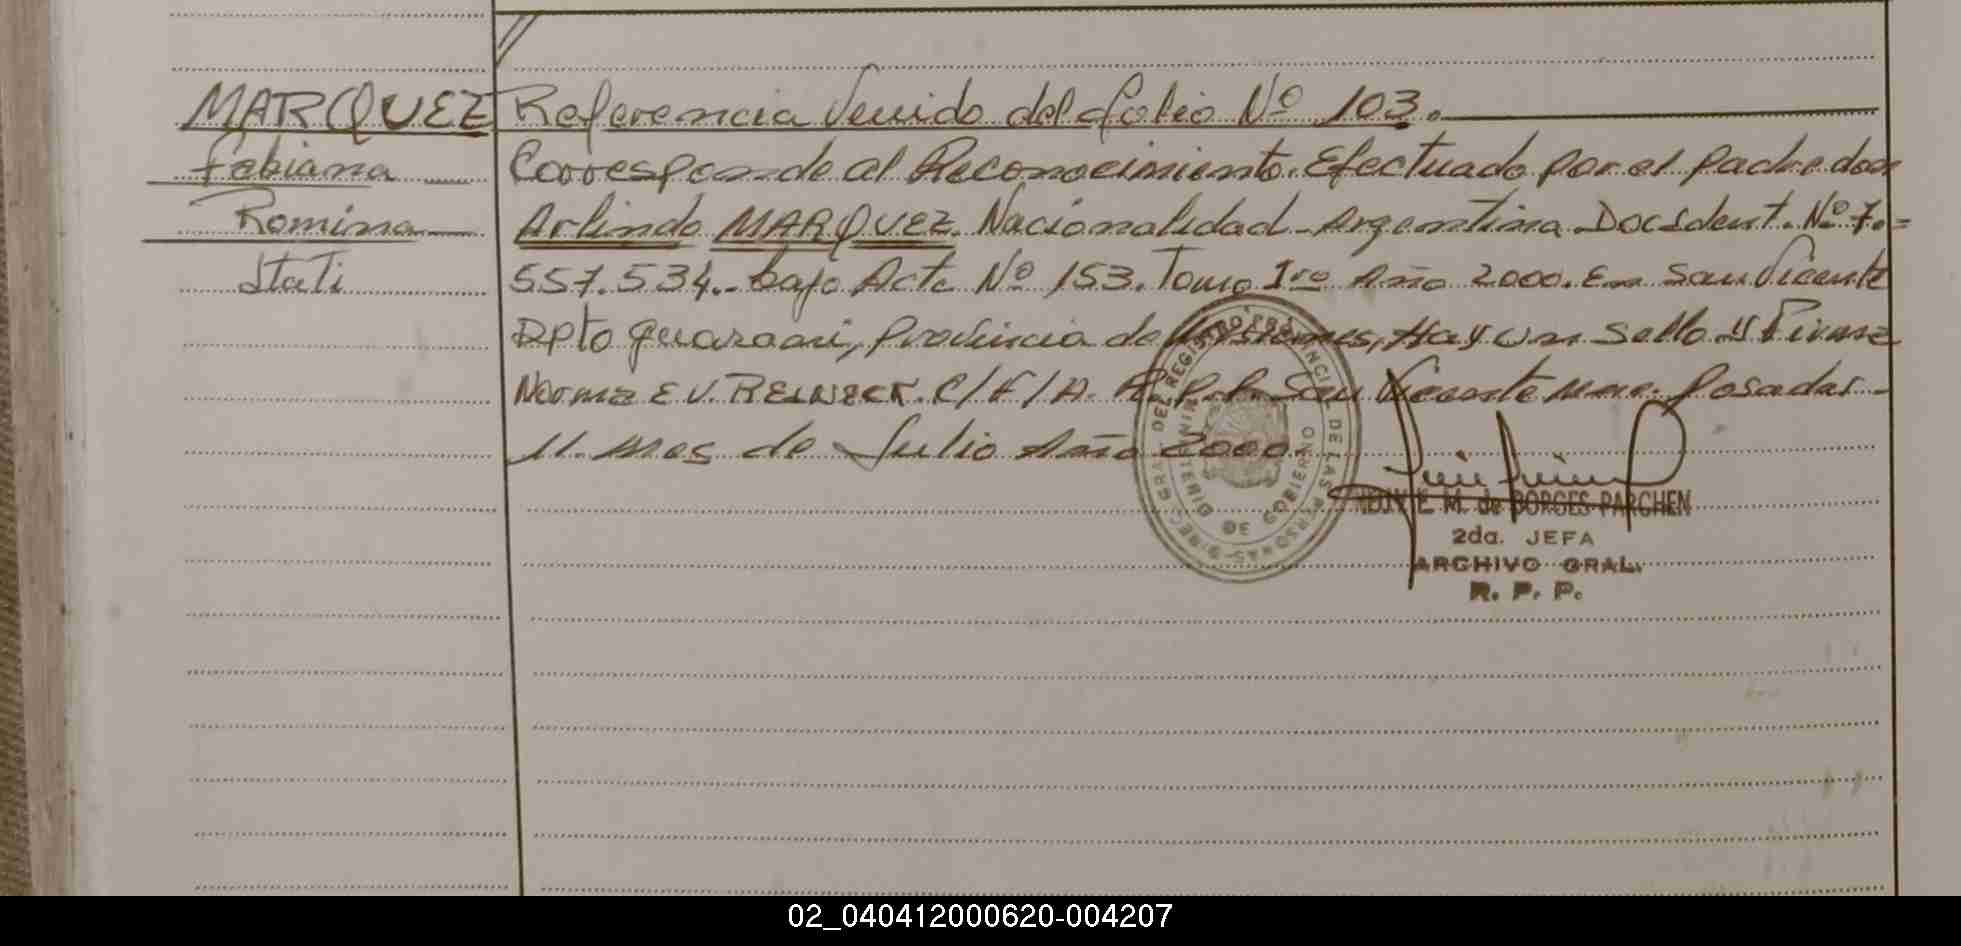 MARQUEZ
Fabiana
Romina
Itati
Referencia Venido del folio Nº 103.
Corresponde al Reconocimiento. Efectuado por el padre don
Arlindo MARQUEZ. Nacionalidad - Argentina. Doc Ident. Nº 7.=
557.534.- bajo Acta Nº 153. Tomo 1ro Año 2000. En San Vicente
Dpto Guarani, Provincia de Misiones, Hay un Sello y Firma
Norma E V. REINECK. C/F/A. R.P.P. San Vicente Mnes. Posadas -
11. Mes de Julio Año 2000.
DIREC. GRAL. DEL REGISTRO PROVINCIAL DE LAS PERSONAS
DE GOBIERNO
E. M. de BORGES PARCHEN
2da. JEFA
ARCHIVO GRAL.
R. P. P.
02_040412000620-004207